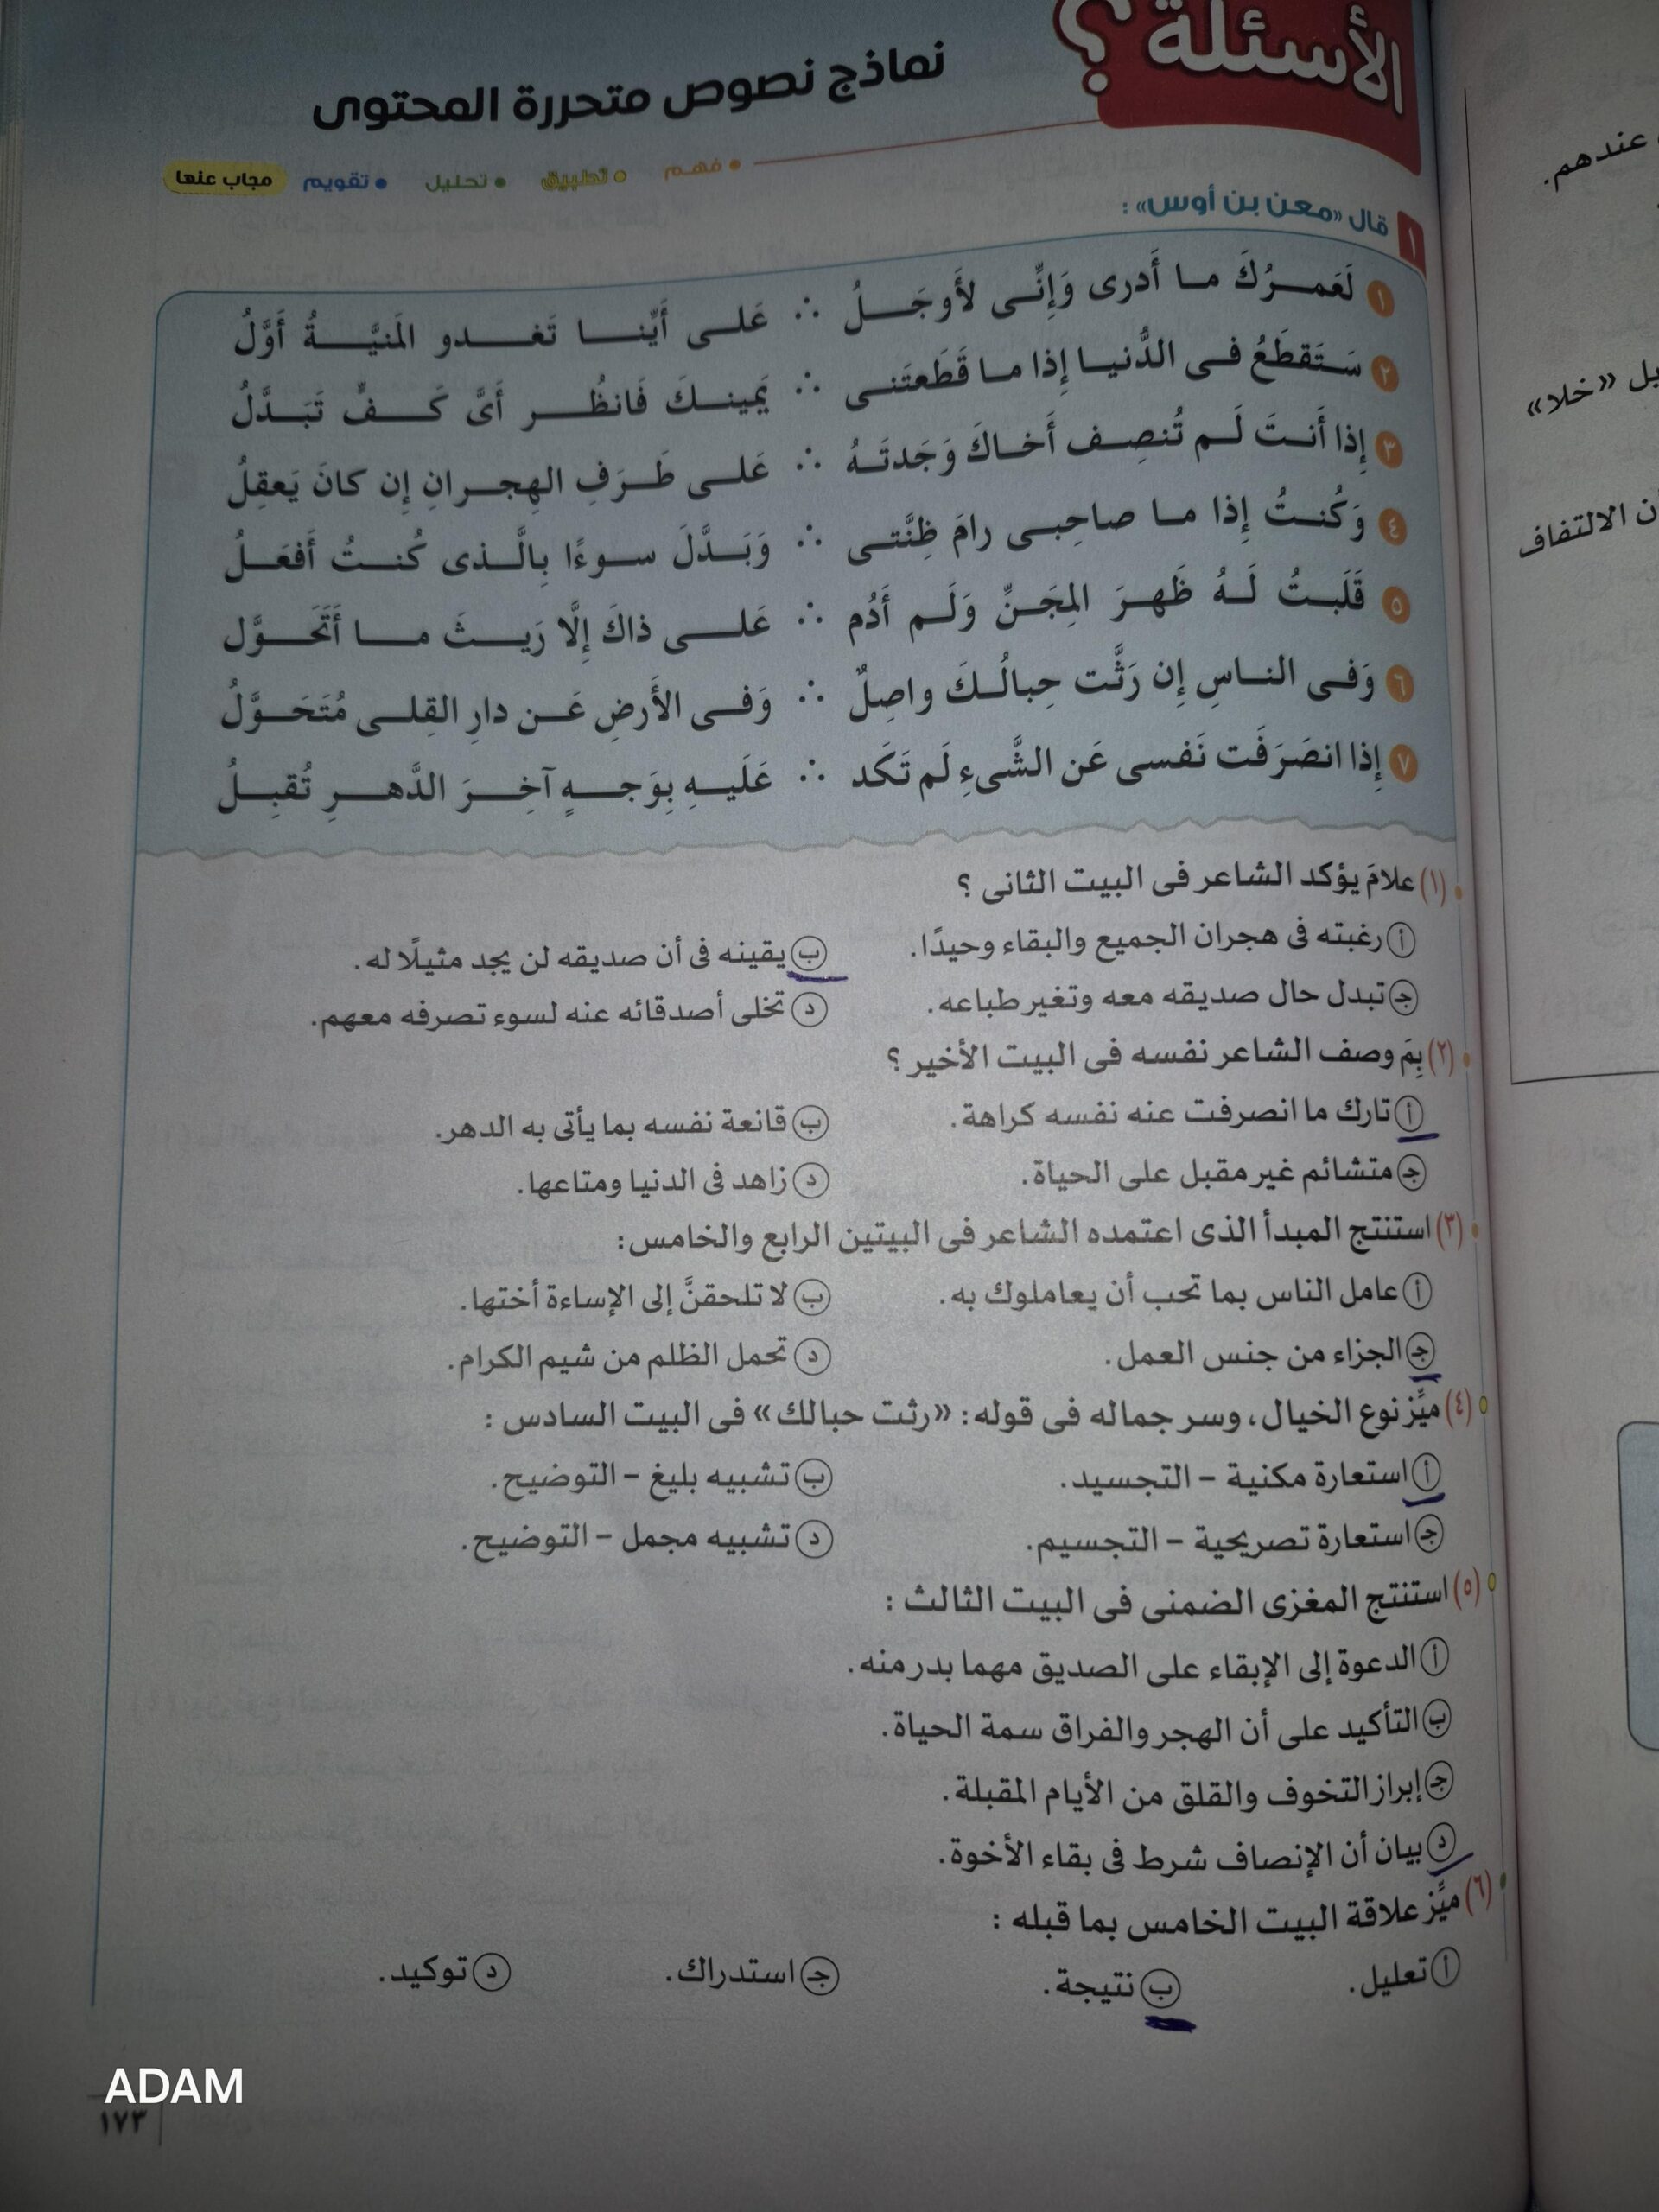 الأسئلة ؟
نماذج نصوص متحررة المحتوى
• فهم • تطبيق • تحليل • تقويم مجاب عنها
١ قال «معن بن أوس» :
١ لَعَمــرُكَ مـا أَدرى وَإِنّـى لأَوجَــلُ ∴ عَلـى أَيِّنــا تَغــدو المَنيَّــةُ أَوَّلُ
٢ سَـتَقطَعُ فـى الدُّنيـا إِذا مـا قَطَعتَنـى ∴ يَمينـكَ فَانظُــر أَىَّ كَــفٍّ تَبَـدَّلُ
٣ إِذا أَنـتَ لَـم تُنصِـف أَخـاكَ وَجَدتَـهُ ∴ عَلـى طَـرَفِ الهِجـرانِ إِن كانَ يَعقِلُ
٤ وَكُنـتُ إِذا مـا صاحِبـى رامَ ظِنَّتـى ∴ وَبَـدَّلَ سـوءًا بِالَّـذى كُنـتُ أَفعَـلُ
٥ قَلَبـتُ لَـهُ ظَهـرَ المِجَـنِّ وَلَـم أَدُم ∴ عَلــى ذاكَ إِلَّا رَيـثَ مــا أَتَحَـوَّل
٦ وَفـى النـاسِ إِن رَثَّت حِبالُـكَ واصِلٌ ∴ وَفـى الأَرضِ عَـن دارِ القِلـى مُتَحَـوَّلُ
٧ إِذا انصَرَفَت نَفسى عَن الشَّىءِ لَم تَكَد ∴ عَلَيـهِ بِوَجـهٍ آخِـرَ الدَّهـرِ تُقبِـلُ
(١) علامَ يؤكد الشاعر فى البيت الثانى ؟
أ رغبته فى هجران الجميع والبقاء وحيدًا. ب يقينه فى أن صديقه لن يجد مثيلًا له.
ج تبدل حال صديقه معه وتغير طباعه. د تخلى أصدقائه عنه لسوء تصرفه معهم.
(٢) بِمَ وصف الشاعر نفسه فى البيت الأخير ؟
أ تارك ما انصرفت عنه نفسه كراهة. ب قانعة نفسه بما يأتى به الدهر.
ج متشائم غير مقبل على الحياة. د زاهد فى الدنيا ومتاعها.
(٣) استنتج المبدأ الذى اعتمده الشاعر فى البيتين الرابع والخامس:
أ عامل الناس بما تحب أن يعاملوك به. ب لا تلحقنَّ إلى الإساءة أختها.
ج الجزاء من جنس العمل. د تحمل الظلم من شيم الكرام.
(٤) ميِّز نوع الخيال، وسر جماله فى قوله: «رثت حبالك» فى البيت السادس :
أ استعارة مكنية – التجسيد. ب تشبيه بليغ – التوضيح.
ج استعارة تصريحية – التجسيم. د تشبيه مجمل – التوضيح.
(٥) استنتج المغزى الضمنى فى البيت الثالث :
أ الدعوة إلى الإبقاء على الصديق مهما بدر منه.
ب التأكيد على أن الهجر والفراق سمة الحياة.
ج إبراز التخوف والقلق من الأيام المقبلة.
د بيان أن الإنصاف شرط فى بقاء الأخوة.
(٦) ميِّز علاقة البيت الخامس بما قبله :
أ تعليل. ب نتيجة. ج استدراك. د توكيد.
ADAM
١٧٣
عندهم.
«خلا»
الالتفاف